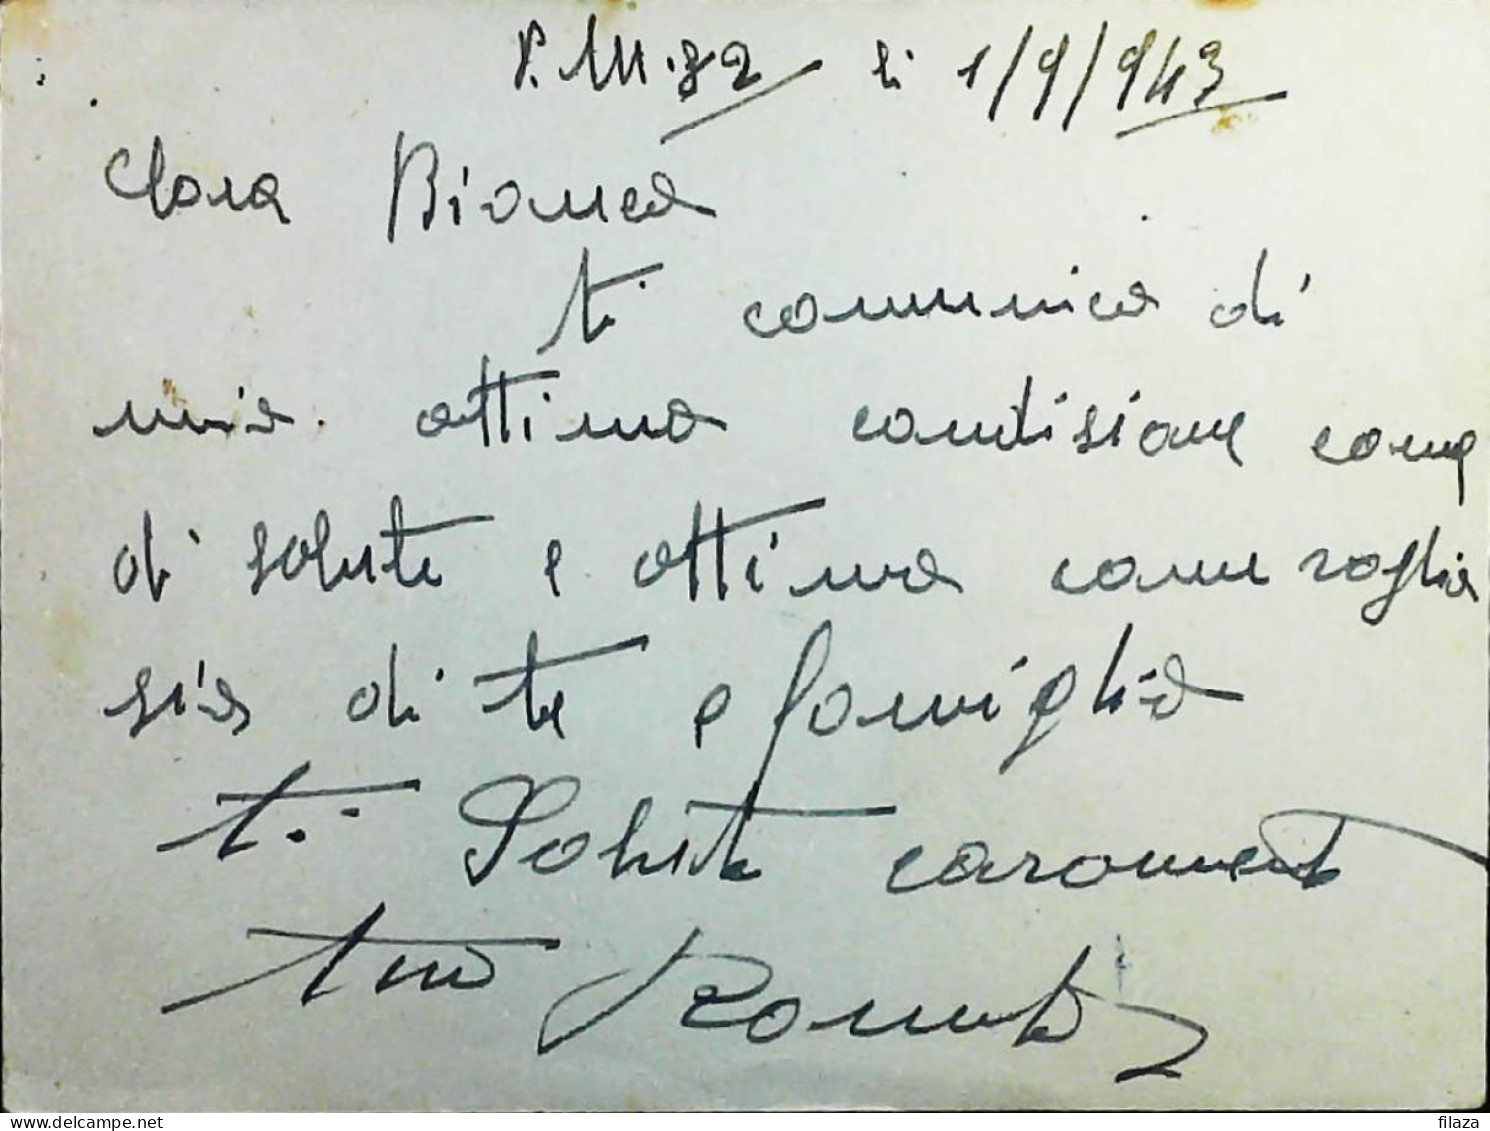 P.M. 32 li 1/9/943
Cara Bianca
ti comunico di
mia ottima condizione come
di salute e ottima come voglia
sia di te e famiglia
ti Saluto caramente
tuo
filaza